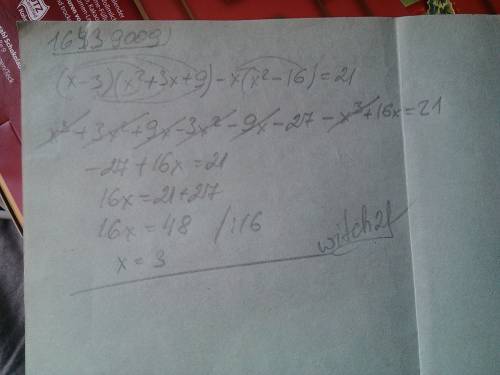 16439009)
(x-3)(x²+3x+9)-x(x²-16)=21
x³+3x²+9x-3x²-9x-27-x³+16x=21
-27+16x=21
16x=21+27
16x=48 /:16
x=3
witch21